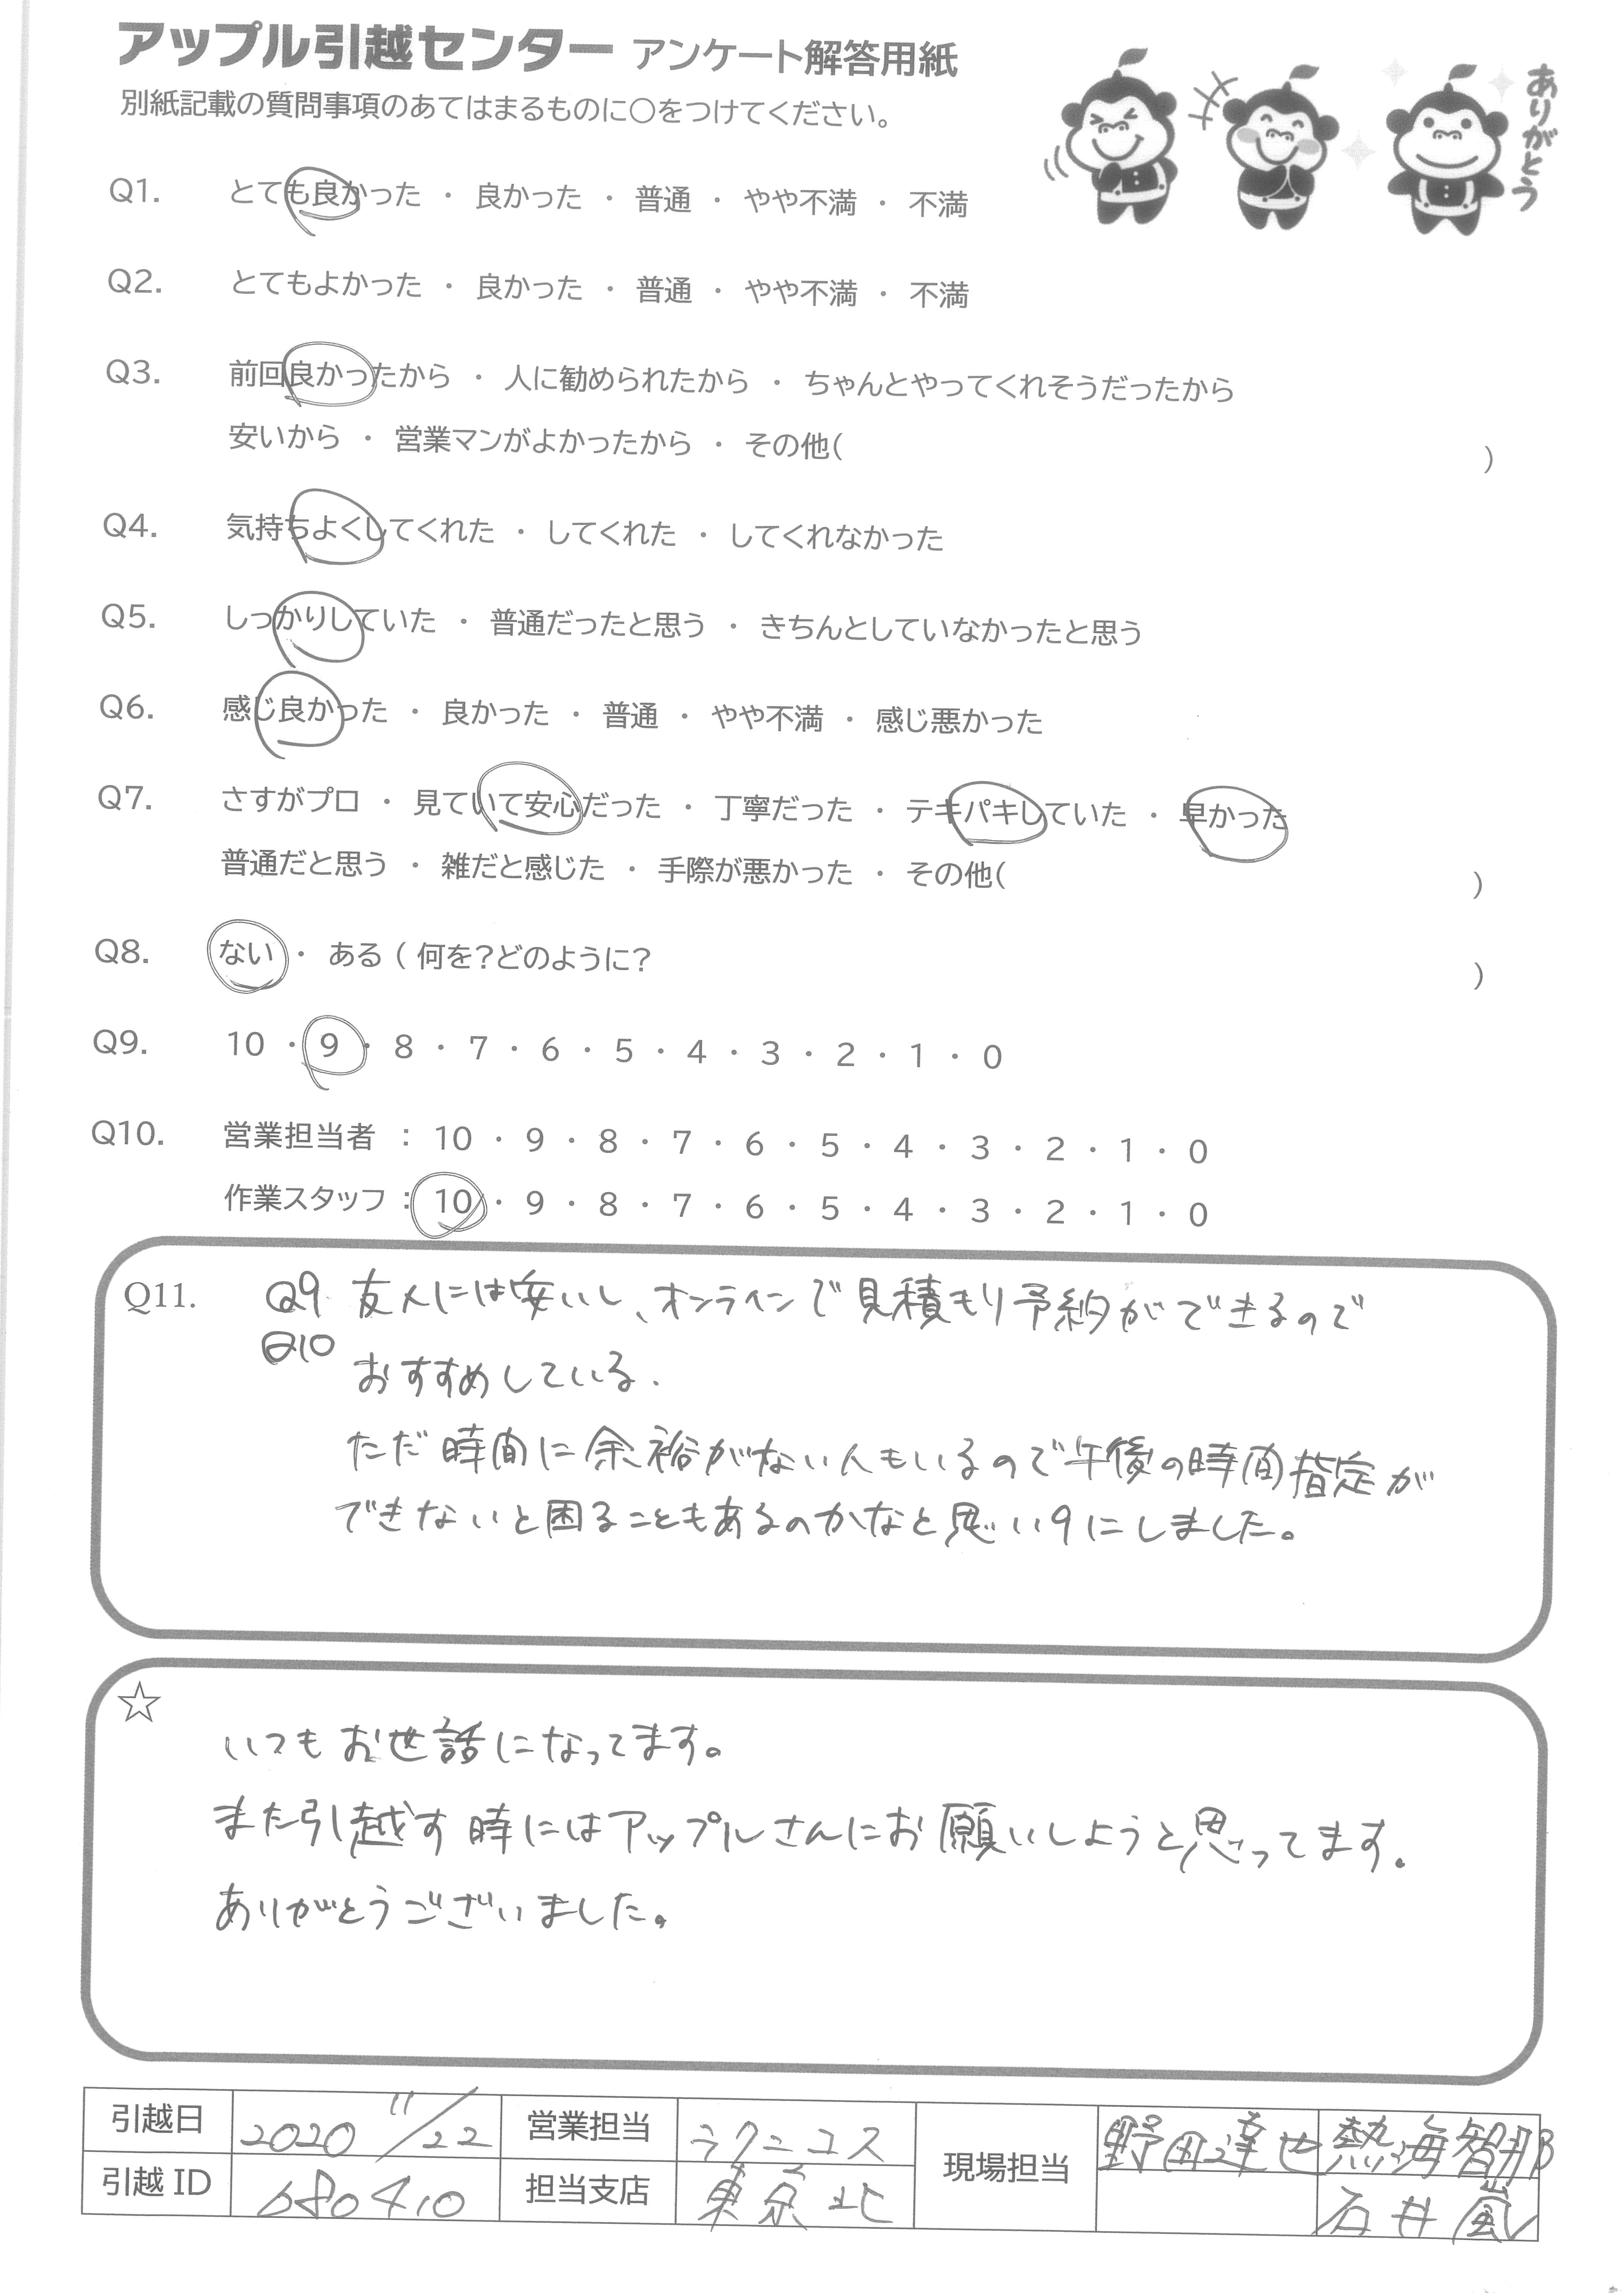 アップル引越センター アンケート解答用紙
別紙記載の質問事項のあてはまるものに○をつけてください。
ありがとう
Q1. とても良かった ・ 良かった ・ 普通 ・ やや不満 ・ 不満
Q2. とてもよかった ・ 良かった ・ 普通 ・ やや不満 ・ 不満
Q3. 前回良かったから ・ 人に勧められたから ・ ちゃんとやってくれそうだったから
安いから ・ 営業マンがよかったから ・ その他( )
Q4. 気持ちよくしてくれた ・ してくれた ・ してくれなかった
Q5. しっかりしていた ・ 普通だったと思う ・ きちんとしていなかったと思う
Q6. 感じ良かった ・ 良かった ・ 普通 ・ やや不満 ・ 感じ悪かった
Q7. さすがプロ ・ 見ていて安心だった ・ 丁寧だった ・ テキパキしていた ・ 早かった
普通だと思う ・ 雑だと感じた ・ 手際が悪かった ・ その他( )
Q8. ない ・ ある ( 何を?どのように? )
Q9. 10 ・ 9 ・ 8 ・ 7 ・ 6 ・ 5 ・ 4 ・ 3 ・ 2 ・ 1 ・ 0
Q10. 営業担当者 : 10 ・ 9 ・ 8 ・ 7 ・ 6 ・ 5 ・ 4 ・ 3 ・ 2 ・ 1 ・ 0
作業スタッフ : 10 ・ 9 ・ 8 ・ 7 ・ 6 ・ 5 ・ 4 ・ 3 ・ 2 ・ 1 ・ 0
Q11. Q9 友人には安いし、オンラインで見積もり予約ができるので
Q10 おすすめしている.
ただ時間に余裕がない人もいるので午後の時間指定が
できないと困ることもあるのかなと思い9にしました。
☆
いつもお世話になってます。
また引越す時にはアップルさんにお願いしようと思ってます.
ありがとうございました。
引越日 2020 11/22 営業担当 ラクニコス 現場担当 野田達也 熱海智那
引越ID 680410 担当支店 東京北 石井嵐